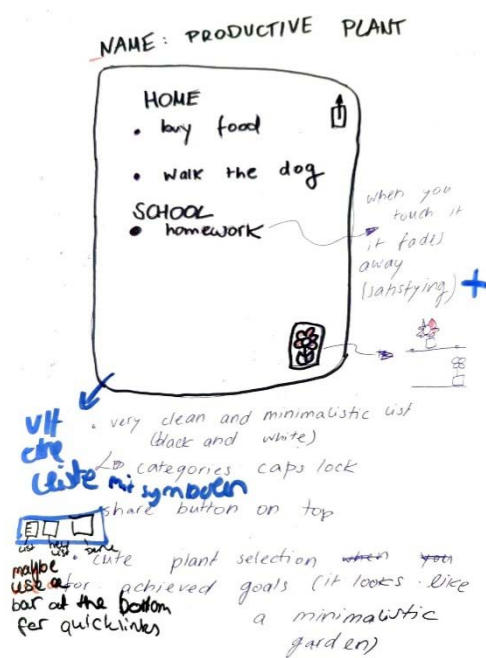 NAME: PRODUCTIVE PLANT
HOME
• buy food
• walk the dog
SCHOOL
• homework
when you
touch it
it fades
away
(satisfying) +
• very clean and minimalistic list
(black and white)
categories caps lock
share button on top
• cute plant selection when you
for achieved goals (it looks like
a minimalistic
garden)
vlt
eine
Leiste mit symbolen
list
list
maybe
use a
bar at the bottom
for quicklinks